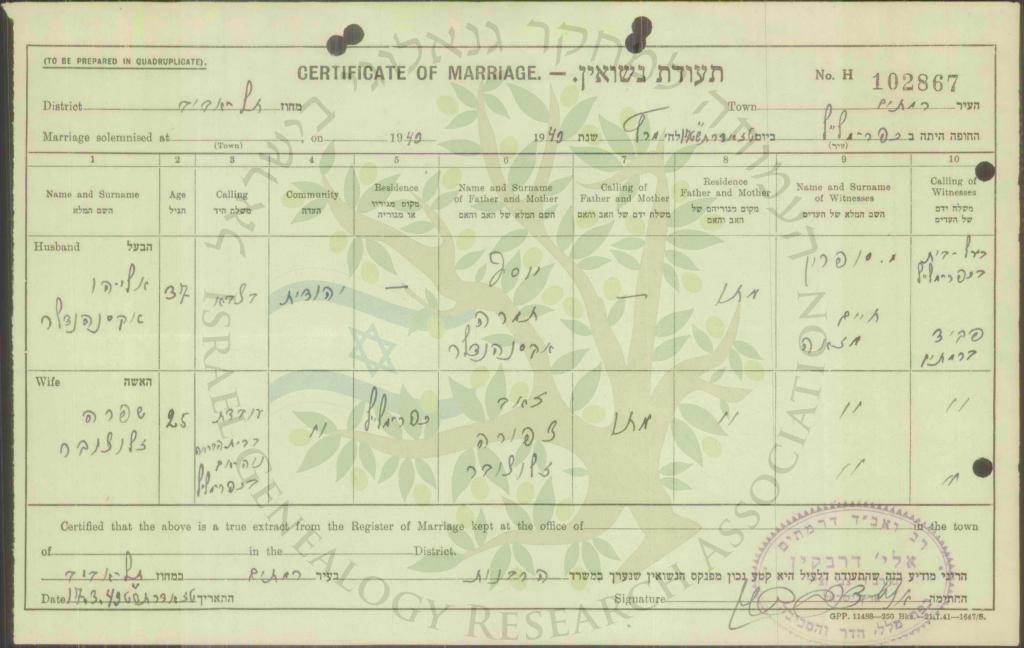 (TO BE PREPARED IN QUADRUPLICATE).
CERTIFICATE OF MARRIAGE. — תעודת נשואין.
No. H 102867
District מחוז תל-אביב Town רמתים העיר
Marriage solemnised at , on 1949 1949 שנת החופה היתה ב כפר-מל"ל ביום
(Town) (עיר)
1 2 3 4 5 6 7 8 9 10
Name and Surname השם המלא
Age הגיל
Calling משלח היד
Community העדה
Residence מקום מגוריו או מגוריה
Name and Surname of Father and Mother השם המלא של האב והאם
Calling of Father and Mother משלח ידם של האב והאם
Residence Father and Mother מקום מגוריהם של האב והאם
Name and Surname of Witnesses השם המלא של העדים
Calling of Witnesses משלח ידם של העדים
Husband הבעל
אליהו
אקסנהנדלר
37
יהודית
—
יוסף
תמרה
אקסנהנדלר
—
מתו
מ. סופרין
חיים
בעל-בית
בכפר-מל"ל
ברמתים
Wife האשה
שפרה
זלוצובר
25
עובדת
בכפר-מל"ל
"
כפר-מל"ל
זאב
צפורה
זלוצובר
מתו
"
"
"
"
"
Certified that the above is a true extract from the Register of Marriage kept at the office of in the town
of in the District.
הריני מודיע בזה שהתעודה דלעיל היא קטע נכון מפנקס הנשואין שנערך במשרד הרבנות בעיר רמתים במחוז תל-אביב
Date 17.3.49 התאריך Signature החתימה
GPP. 11488—250 Bks.—21.1.41—1647/S.
רב ואב"ד דרמתים
אלי' דרבקין
כפר מלל, הדר והסביבה
ISRAEL GENEALOGY RESEARCH ASSOCIATION
העמותה למחקר גנאלוגי בישראל